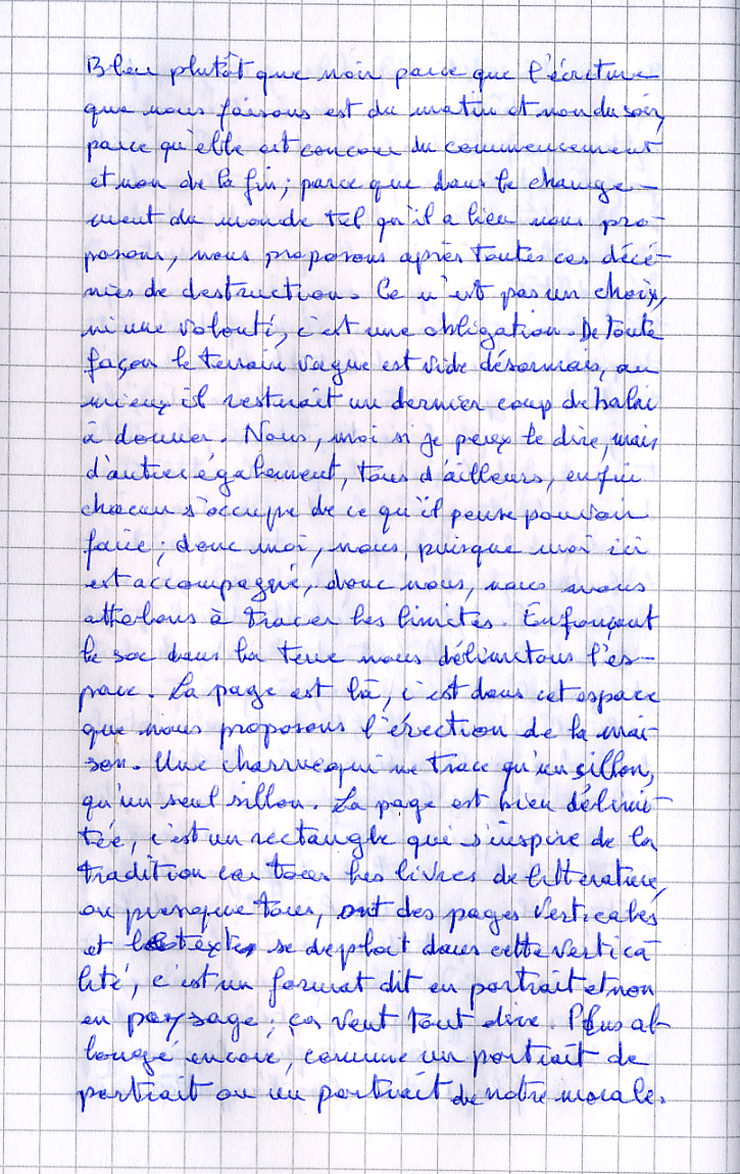 Bleu plutôt que noir parce que l'écriture
que nous faisons est du matin et non du soir,
parce qu'elle est du commencement
et non de la fin ; parce que dans le change-
ment du monde tel qu'il a lieu nous pro-
posons, nous proposons après toutes ces décé-
nies de destruction. Ce n'est pas un choix,
ni une volonté, c'est une obligation. De toute
façon le terrain vague est vide désormais, au
mieux il resterait un dernier coup de balai
à donner. Nous, moi si je peux le dire, mais
d'autres également, tous d'ailleurs, enfin
chacun s'occupe de ce qu'il pense pouvoir
faire ; donc moi, nous, puisque moi ici
est accompagné, donc nous, nous nous
attelons à tracer les limites. Enfonçant
le soc dans la terre nous délimitons l'es-
pace. La page est là, c'est dans cet espace
que nous proposons l'érection de la mai-
son. Une charrue qui ne trace qu'un sillon,
qu'un seul sillon. La page est bien délimi-
tée, c'est un rectangle qui s'inspire de la
tradition car tous les livres de littérature,
ou presque tous, ont des pages verticales
et se deploit dans cette vertica-
lité, c'est un format dit en portrait et non
en paysage ; ça veut tout dire. Plus al-
longé encore, comme un portrait de
portrait ou un portrait de notre morale.